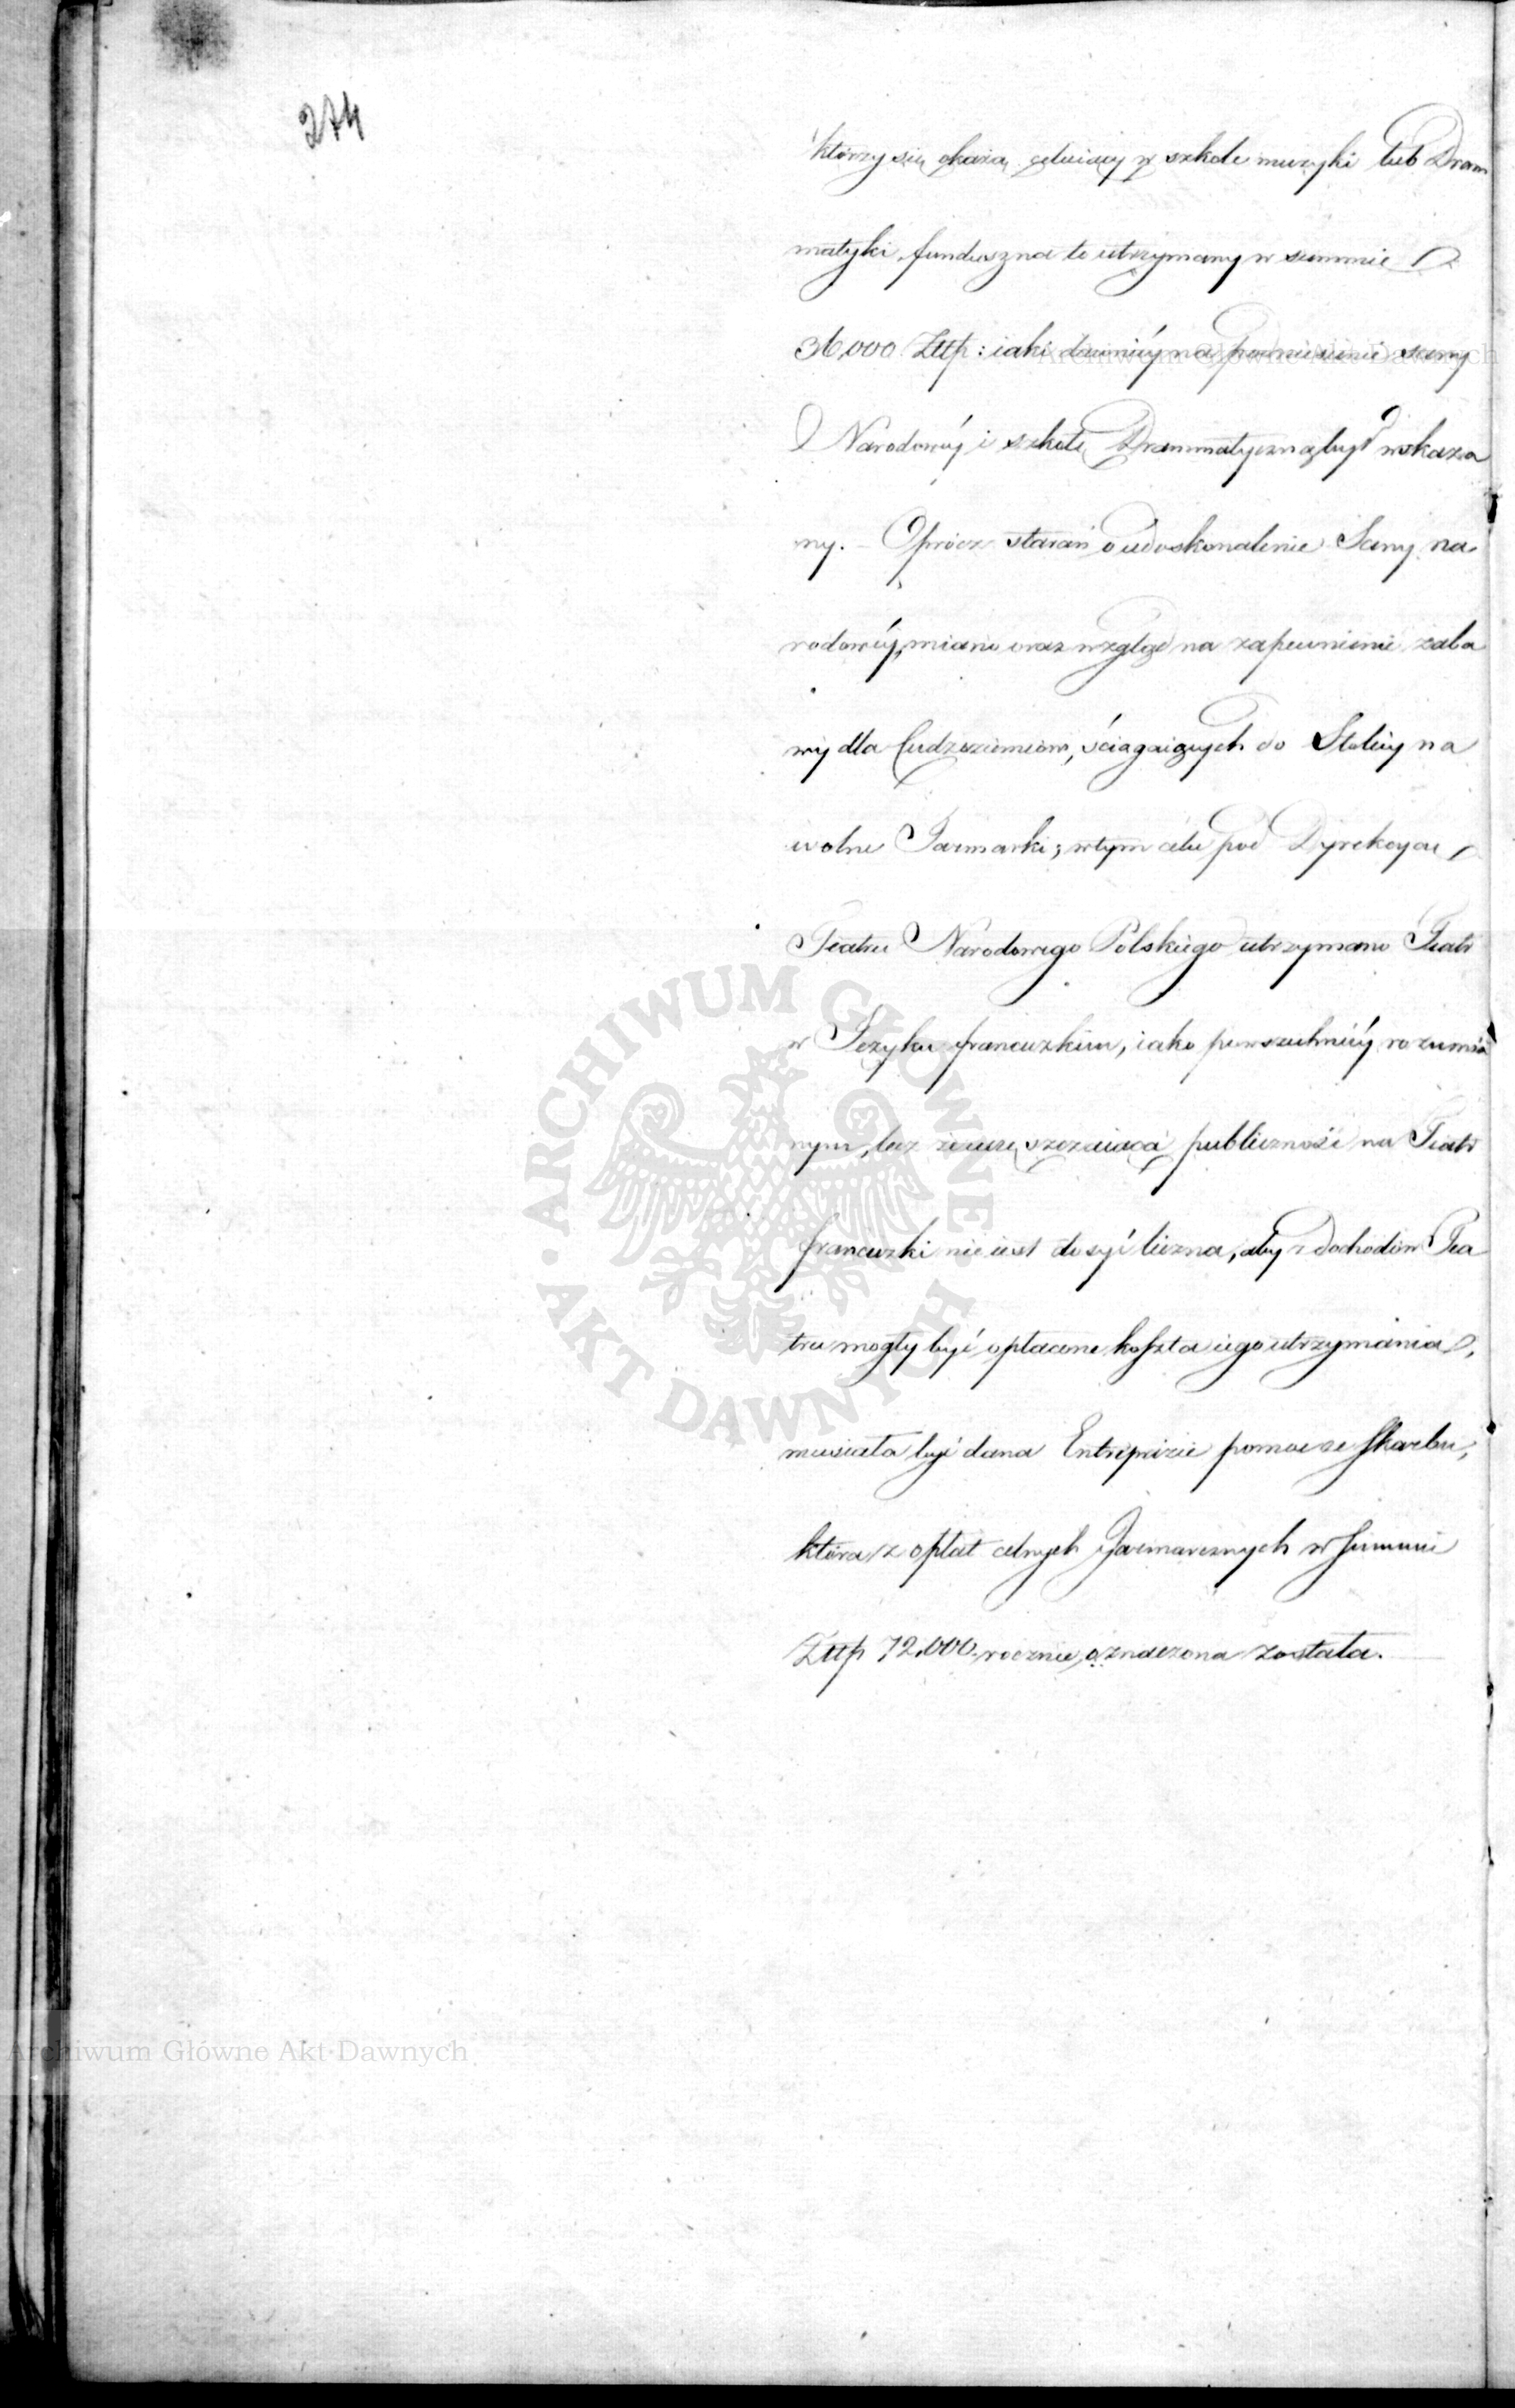 274
którzy się okażą celuiący w szkole muzyki lub Dram
matyki, fundusz na to utrzymany w summie
36,000 Złtp: iaki dawniéy na podniesienie sceny
Narodowéy i szkołę Drammatyczną był wskaza
ny. – Oprócz starań o udoskonalenie Sceny na
rodowéy, miano oraz wzgląd na zapewnienie zaba
wy dla Cudzoziemców, ściągaiących do Stolicy na
wolne Jarmarki; w tym celu pod Dyrekcyą
Teatru Narodowego Polskiego utrzymano Teatr
w Języku francuzkim, iako powszechniéy rozumia
nym, lecz że uczęszczaiąca publiczność na Teatr
francuzki nie iest dosyć liczna, aby z dochodów Tea
tru mogły być opłacone koszta iego utrzymania,
musiała być dana Entrepryzie pomoc ze Skarbu,
która z opłat celnych Jarmarcznych w Summie
Złtp 72,000 rocznie, oznaczona została.
ARCHIWUM GŁÓWNE AKT DAWNYCH
Archiwum Główne Akt Dawnych
Archiwum Główne Akt Dawnych